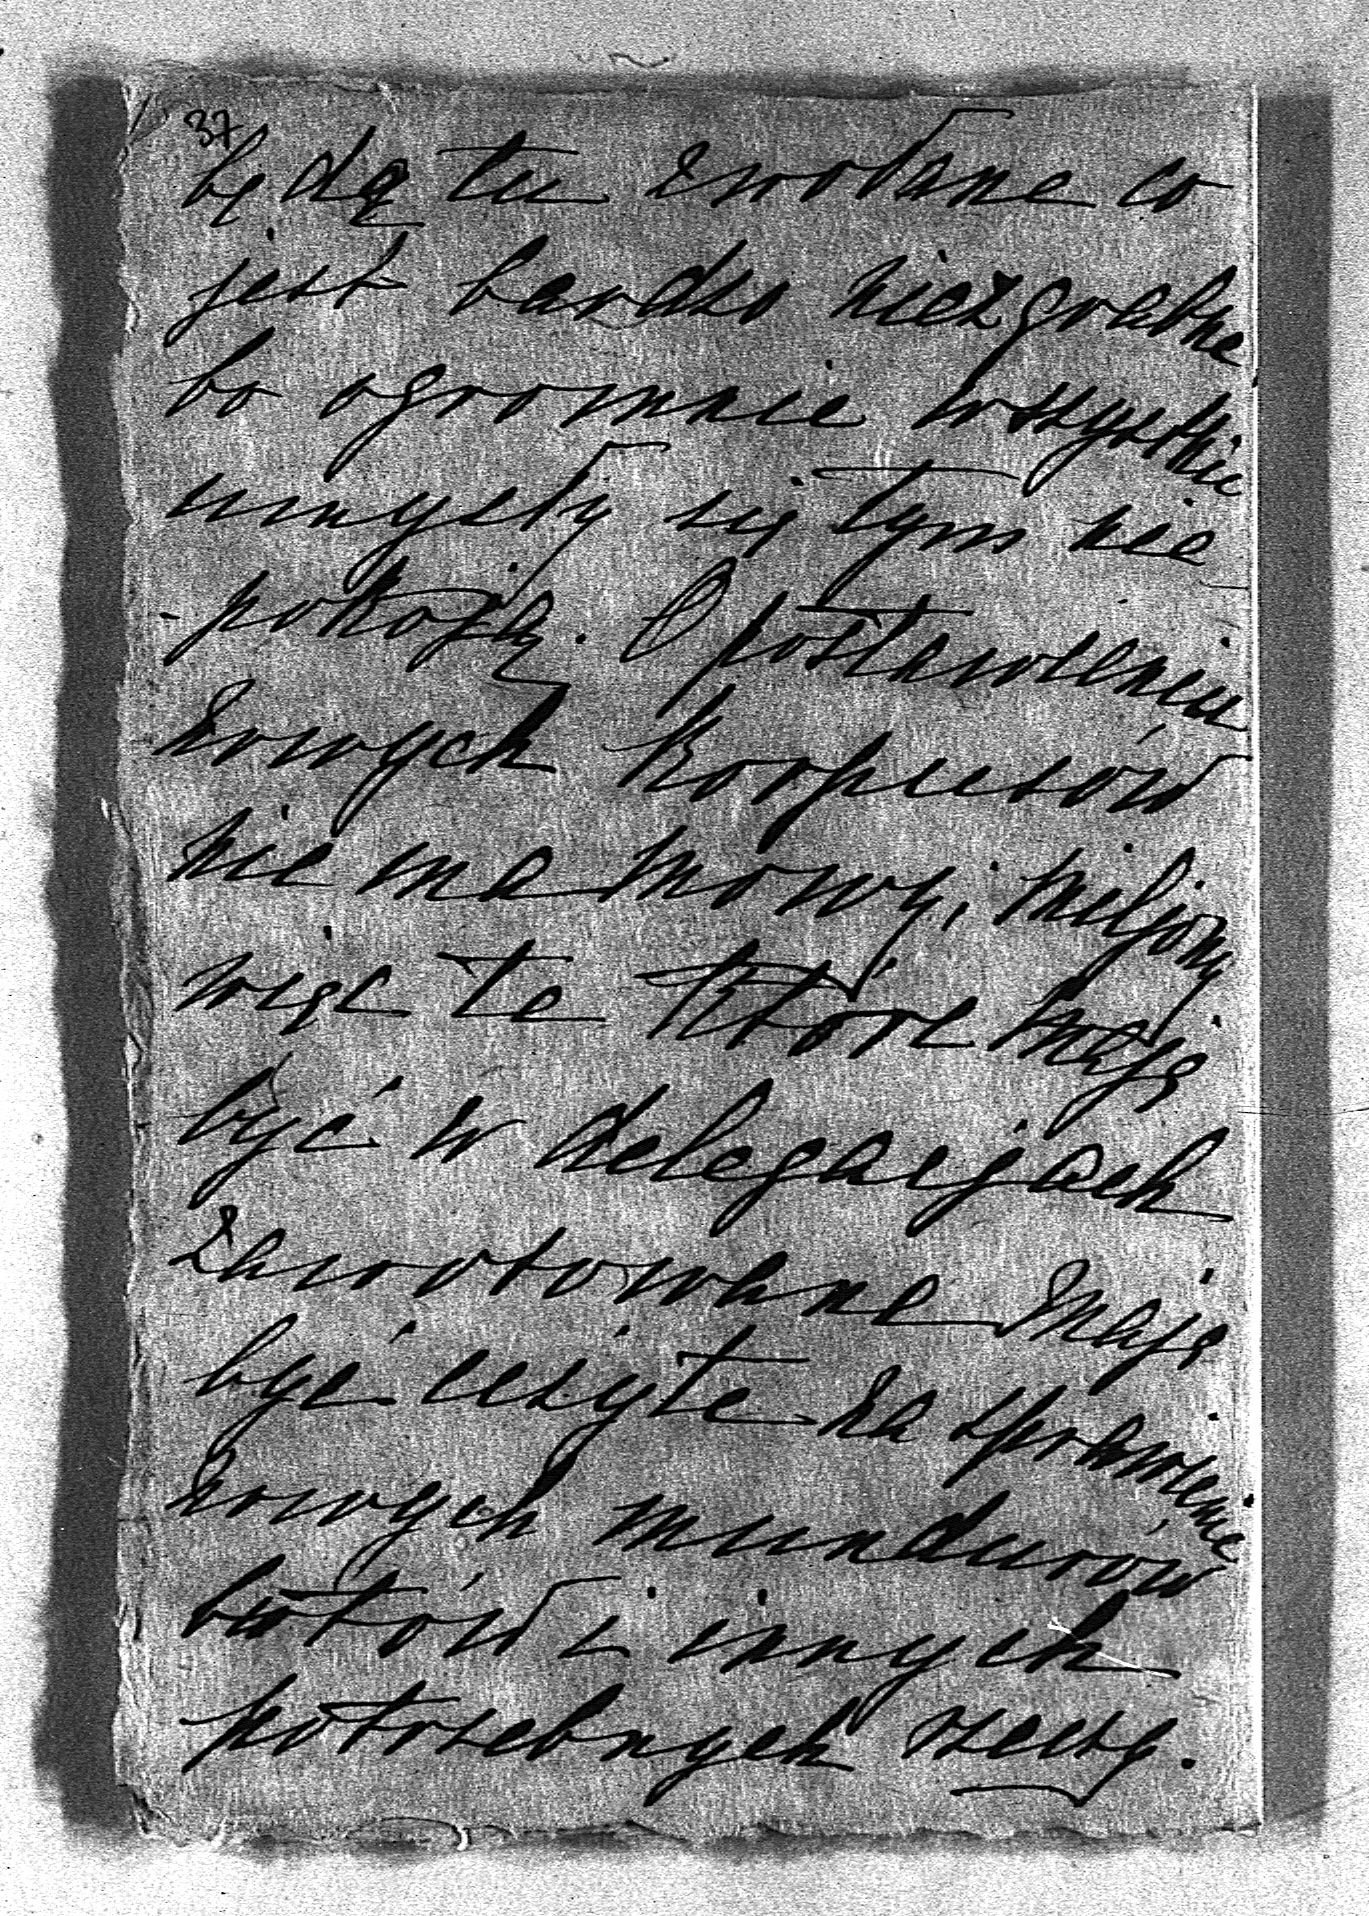 37
będą tu zwołane co
jest bardzo niezgrabne
bo ogromnie wszystkie
umysły się tym nie
-pokoją. O postawieniu
nowych korpusów
nie ma mowy; miljony
więc te które mają
być w delegacjach
zawotowane mają
być użyte na sprawienie
nowych mundurów
butów i innych
potrzebnych rzeczy.